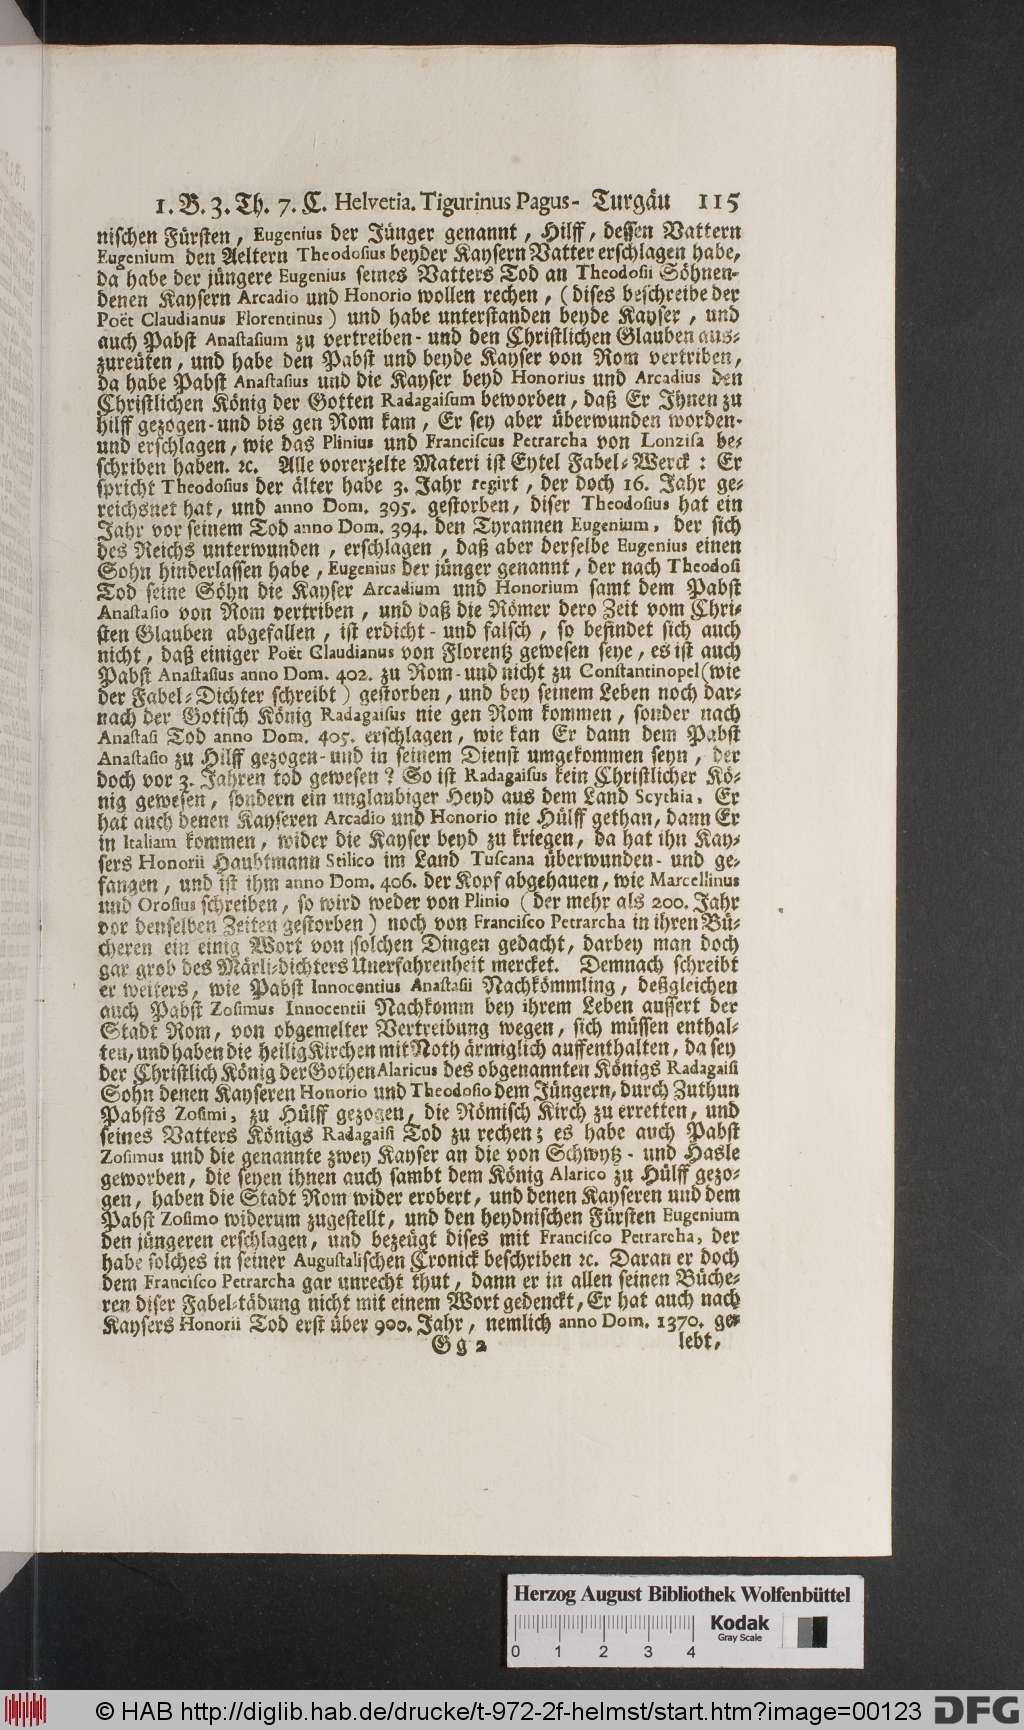 1. B. 3. Th. 7. C. Helvetia. Tigurinus Pagus- Turgäu 115
nischen Fürsten, Eugenius der Jünger genannt, Hilff, dessen Vattern
Eugenium den Aeltern Theodosius beyder Kaysern Vatter erschlagen habe,
da habe der jüngere Eugenius seines Vatters Tod an Theodosii Söhnen-
denen Kaysern Arcadio und Honorio wollen rechen, (dises beschreibe der
Poët Claudianus Florentinus) und habe unterstanden beyde Kayser, und
auch Pabst Anastasium zu vertreiben- und den Christlichen Glauben aus-
zureüten, und habe den Pabst und beyde Kayser von Rom vertriben,
da habe Pabst Anastasius und die Kayser beyd Honorius und Arcadius den
Christlichen König der Gotten Radagaisum beworben, daß Er Ihnen zu
hilff gezogen- und bis gen Rom kam, Er sey aber überwunden worden-
und erschlagen, wie das Plinius und Franciscus Petrarcha von Lonzisa be-
schriben haben. ꝛc. Alle vorerzelte Materi ist Eytel Fabel-Werck: Er
spricht Theodosius der älter habe 3. Jahr regirt, der doch 16. Jahr ge-
reichsnet hat, und anno Dom. 395. gestorben, diser Theodosius hat ein
Jahr vor seinem Tod anno Dom. 394. den Tyrannen Eugenium, der sich
des Reichs unterwunden, erschlagen, daß aber derselbe Eugenius einen
Sohn hinderlassen habe, Eugenius der jünger genannt, der nach Theodosi
Tod seine Söhn die Kayser Arcadium und Honorium samt dem Pabst
Anastasio von Rom vertriben, und daß die Römer dero Zeit vom Chri-
sten Glauben abgefallen, ist erdicht- und falsch, so befindet sich auch
nicht, daß einiger Poët Claudianus von Florentz gewesen seye, es ist auch
Pabst Anastasius anno Dom. 402. zu Rom- und nicht zu Constantinopel (wie
der Fabel-Dichter schreibt) gestorben, und bey seinem Leben noch dar-
nach der Gotisch König Radagaisus nie gen Rom kommen, sonder nach
Anastasi Tod anno Dom. 405. erschlagen, wie kan Er dann dem Pabst
Anastasio zu Hilff gezogen- und in seinem Dienst umgekommen seyn, der
doch vor 3. Jahren tod gewesen? So ist Radagaisus kein Christlicher Kö-
nig gewesen, sondern ein unglaubiger Heyd aus dem Land Scythia. Er
hat auch denen Kayseren Arcadio und Honorio nie Hülff gethan, dann Er
in Italiam kommen, wider die Kayser beyd zu kriegen, da hat ihn Kay-
sers Honorii Haubtmann Stilico im Land Tuscana überwunden- und ge-
fangen, und ist ihm anno Dom. 406. der Kopf abgehauen, wie Marcellinus
und Orosius schreiben, so wird weder von Plinio (der mehr als 200. Jahr
vor denselben Zeiten gestorben) noch von Francisco Petrarcha in ihren Bü-
cheren ein einig Wort von solchen Dingen gedacht, darbey man doch
gar grob des Märli-dichters Unerfahrenheit mercket. Demnach schreibt
er weiters, wie Pabst Innocentius Anastasii Nachkömmling, deßgleichen
auch Pabst Zosimus Innocentii Nachkomm bey ihrem Leben aussert der
Stadt Rom, von obgemelter Vertreibung wegen, sich müssen enthal-
ten, und haben die heilig Kirchen mit Noth ärmiglich auffenthalten, da sey
der Christlich König der Gothen Alaricus des obgenannten Königs Radagaisi
Sohn denen Kayseren Honorio und Theodosio dem Jüngern, durch Zuthun
Pabsts Zosimi, zu Hülff gezogen, die Römisch Kirch zu erretten, und
seines Vatters Königs Radagaisi Tod zu rechen; es habe auch Pabst
Zosimus und die genannte zwey Kayser an die von Schwytz- und Hasle
geworben, die seyen ihnen auch sambt dem König Alarico zu Hülff gezo-
gen, haben die Stadt Rom wider erobert, und denen Kayseren und dem
Pabst Zosimo widerum zugestellt, und den heydnischen Fürsten Eugenium
den jüngeren erschlagen, und bezeügt dises mit Francisco Petrarcha, der
habe solches in seiner Augustalischen Cronick beschriben ꝛc. Daran er doch
dem Francisco Petrarcha gar unrecht thut, dann er in allen seinen Büche-
ren diser Fabel-tädung nicht mit einem Wort gedenckt, Er hat auch nach
Kaysers Honorii Tod erst über 900. Jahr, nemlich anno Dom. 1370. ge-
Gg 2 lebt,
Herzog August Bibliothek Wolfenbüttel
Kodak
Gray Scale
0 1 2 3 4
© HAB http://diglib.hab.de/drucke/t-972-2f-helmst/start.htm?image=00123 DFG